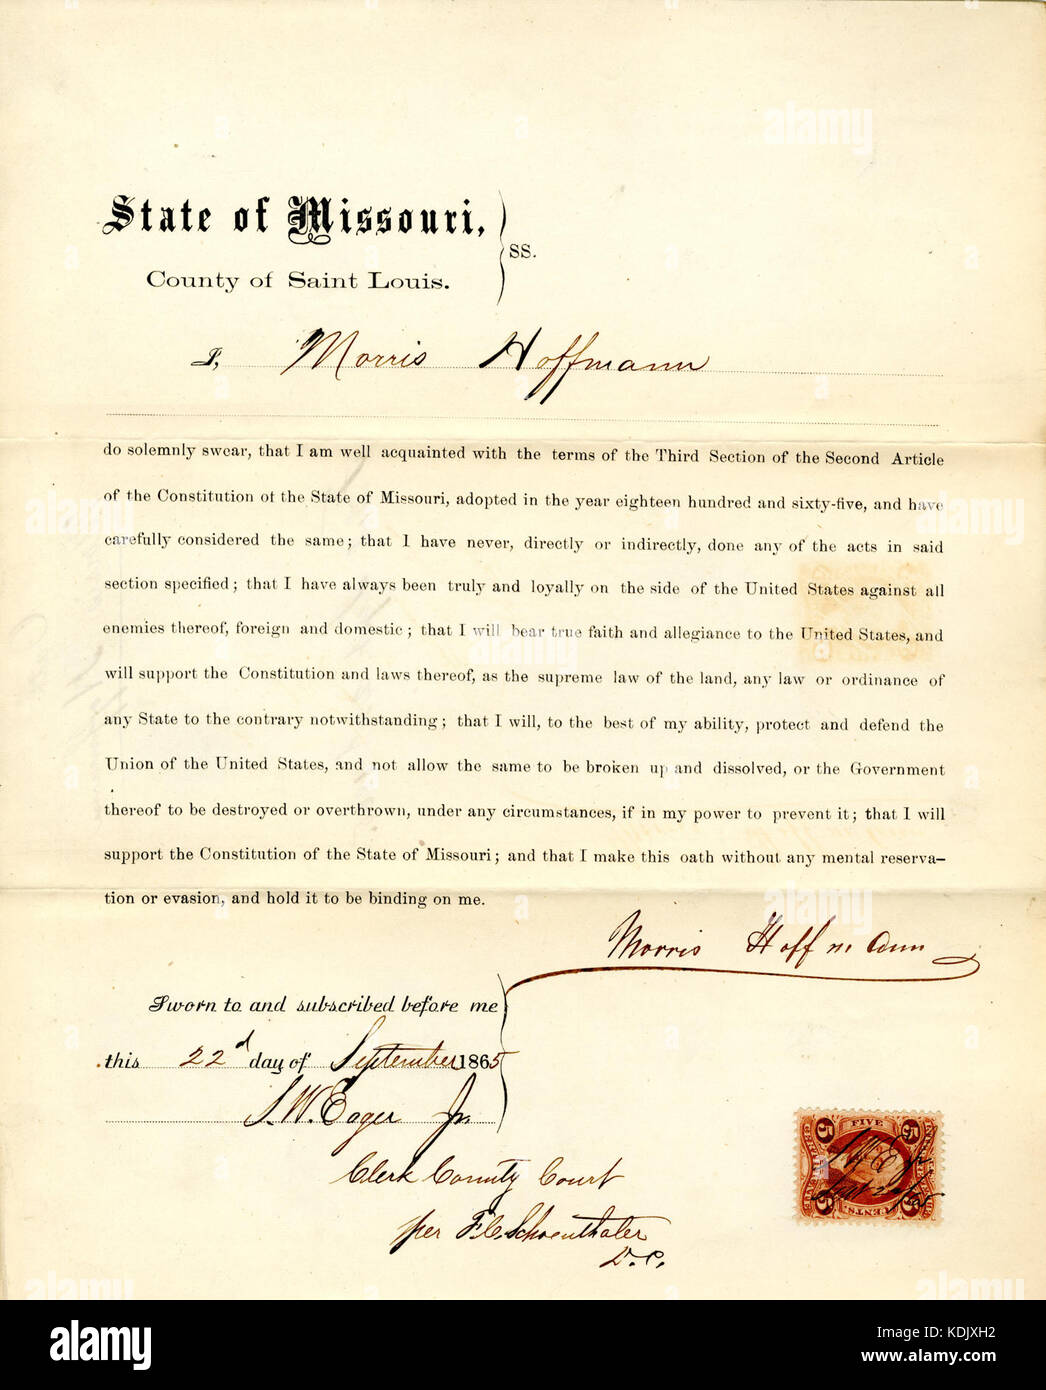 State of Missouri,
SS.
County of Saint Louis.
I, Morris Hoffmann
do solemnly swear, that I am well acquainted with the terms of the Third Section of the Second Article
of the Constitution of the State of Missouri, adopted in the year eighteen hundred and sixty-five, and have
carefully considered the same; that I have never, directly or indirectly, done any of the acts in said
section specified; that I have always been truly and loyally on the side of the United States against all
enemies thereof, foreign and domestic; that I will bear true faith and allegiance to the United States, and
will support the Constitution and laws thereof, as the supreme law of the land, any law or ordinance of
any State to the contrary notwithstanding; that I will, to the best of my ability, protect and defend the
Union of the United States, and not allow the same to be broken up and dissolved, or the Government
thereof to be destroyed or overthrown, under any circumstances, if in my power to prevent it; that I will
support the Constitution of the State of Missouri; and that I make this oath without any mental reserva-
tion or evasion, and hold it to be binding on me.
Morris Hoffmann
Sworn to and subscribed before me
this 22d day of September 1865
S. W. Eager Jr
Clerk County Court
per F. C. Schoenthaler
D. C.
5 FIVE 5
5 CENTS. 5
alamy
Image ID: KDJXH2
www.alamy.com